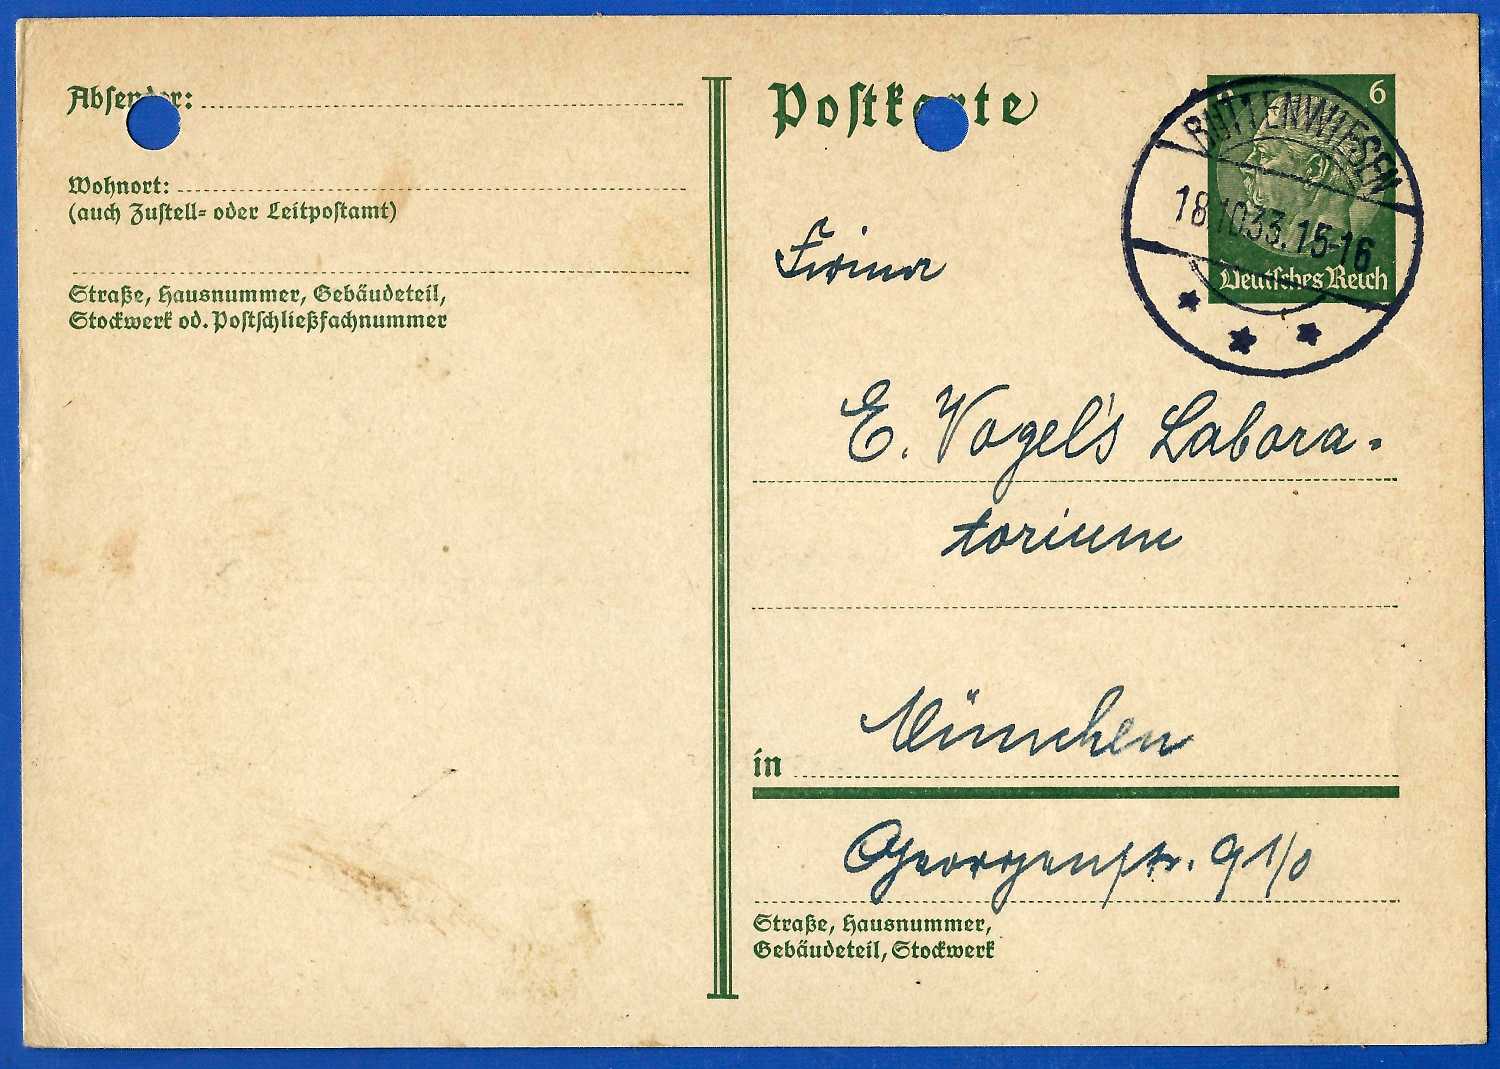 Absender:
Wohnort:
(auch Zustell- oder Leitpostamt)
Straße, Hausnummer, Gebäudeteil,
Stockwerk od. Postschließfachnummer
Postkarte
6
BUTTENWIESEN
18.10.33.15-16
Deutsches Reich
Firma
E. Vogel's Labora-
torium
in München
Georgenstr. 91/0
Straße, Hausnummer,
Gebäudeteil, Stockwerk